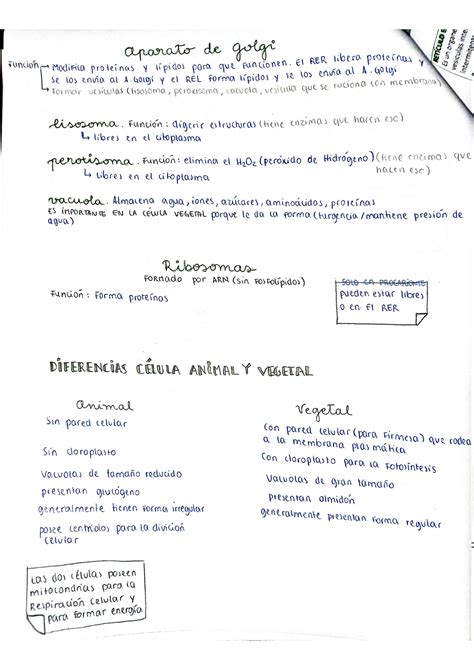 aparato de golgi
Función → Modifica proteínas y lípidos para que funcionen. El RER libera proteínas y
se los envía al A.Golgi y el REL forma lípidos y se los envía al A.Golgi
→ Formar vesículas (lisosoma, peroxisoma, vacuola, vesícula que se fuciona con membrana)
RETÍCULO E
Es un organe
vesículas inte
lisosoma. Función: digerir estructuras (tiene enzimas que hacen eso)
↳ libres en el citoplasma
peroxisoma. Función: elimina el H2O2 (peróxido de Hidrógeno) (tiene enzimas que
hacen eso)
↳ libres en el citoplasma
vacuola. Almacena agua, iones, azúcares, aminoácidos, proteínas
ES IMPORTANTE EN LA CÉLULA VEGETAL porque le da la forma (turgencia/mantiene presión de
agua)
Ribosomas
FORMADO por ARN (sin fosfolípidos)
Función: Forma proteínas
SOLO EN PROCARIONTE
pueden estar libres
o en El RER
DIFERENCIAS CÉLULA ANIMAL Y VEGETAL
animal
Sin pared celular
Sin cloroplasto
Vacuolas de tamaño reducido
presentan glucógeno
generalmente tienen forma irregular
posee centriolos para la división
celular
Vegetal
Con pared celular (para firmesa) que rodea
a la membrana plasmática
Con cloroplasto para la fotosíntesis
Vacuolas de gran tamaño
presentan almidón
generalmente presentan forma regular
Las dos células poseen
mitocondrias para la
Respiración Celular y
para formar energía